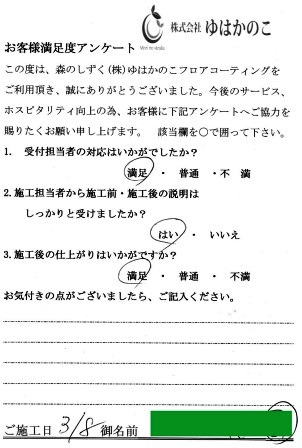 株式会社 ゆはかのこ
お客様満足度アンケート
この度は、森のしずく(株)ゆはかのこフロアコーティングを
ご利用頂き、誠にありがとうございました。今後のサービス、
ホスピタリティ向上の為、お客様に下記アンケートへご協力を
賜りたくお願い申し上げます。　該当欄を○で囲って下さい。
1.　受付担当者の対応はいかがでしたか？
満足　・　普通　・　不 満
2.施工担当者から施工前・施工後の説明は
しっかりと受けましたか？
はい　・　いいえ
3.施工後の仕上がりはいかがですか？
満足　・　普通　・　不満
お気付きの点がございましたら、ご記入ください。
ご施工日 3/8 御名前